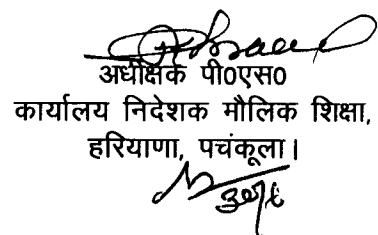 अधीक्षक पी0एस0
कार्यालय निदेशक मौलिक शिक्षा,
हरियाणा, पचंकूला।